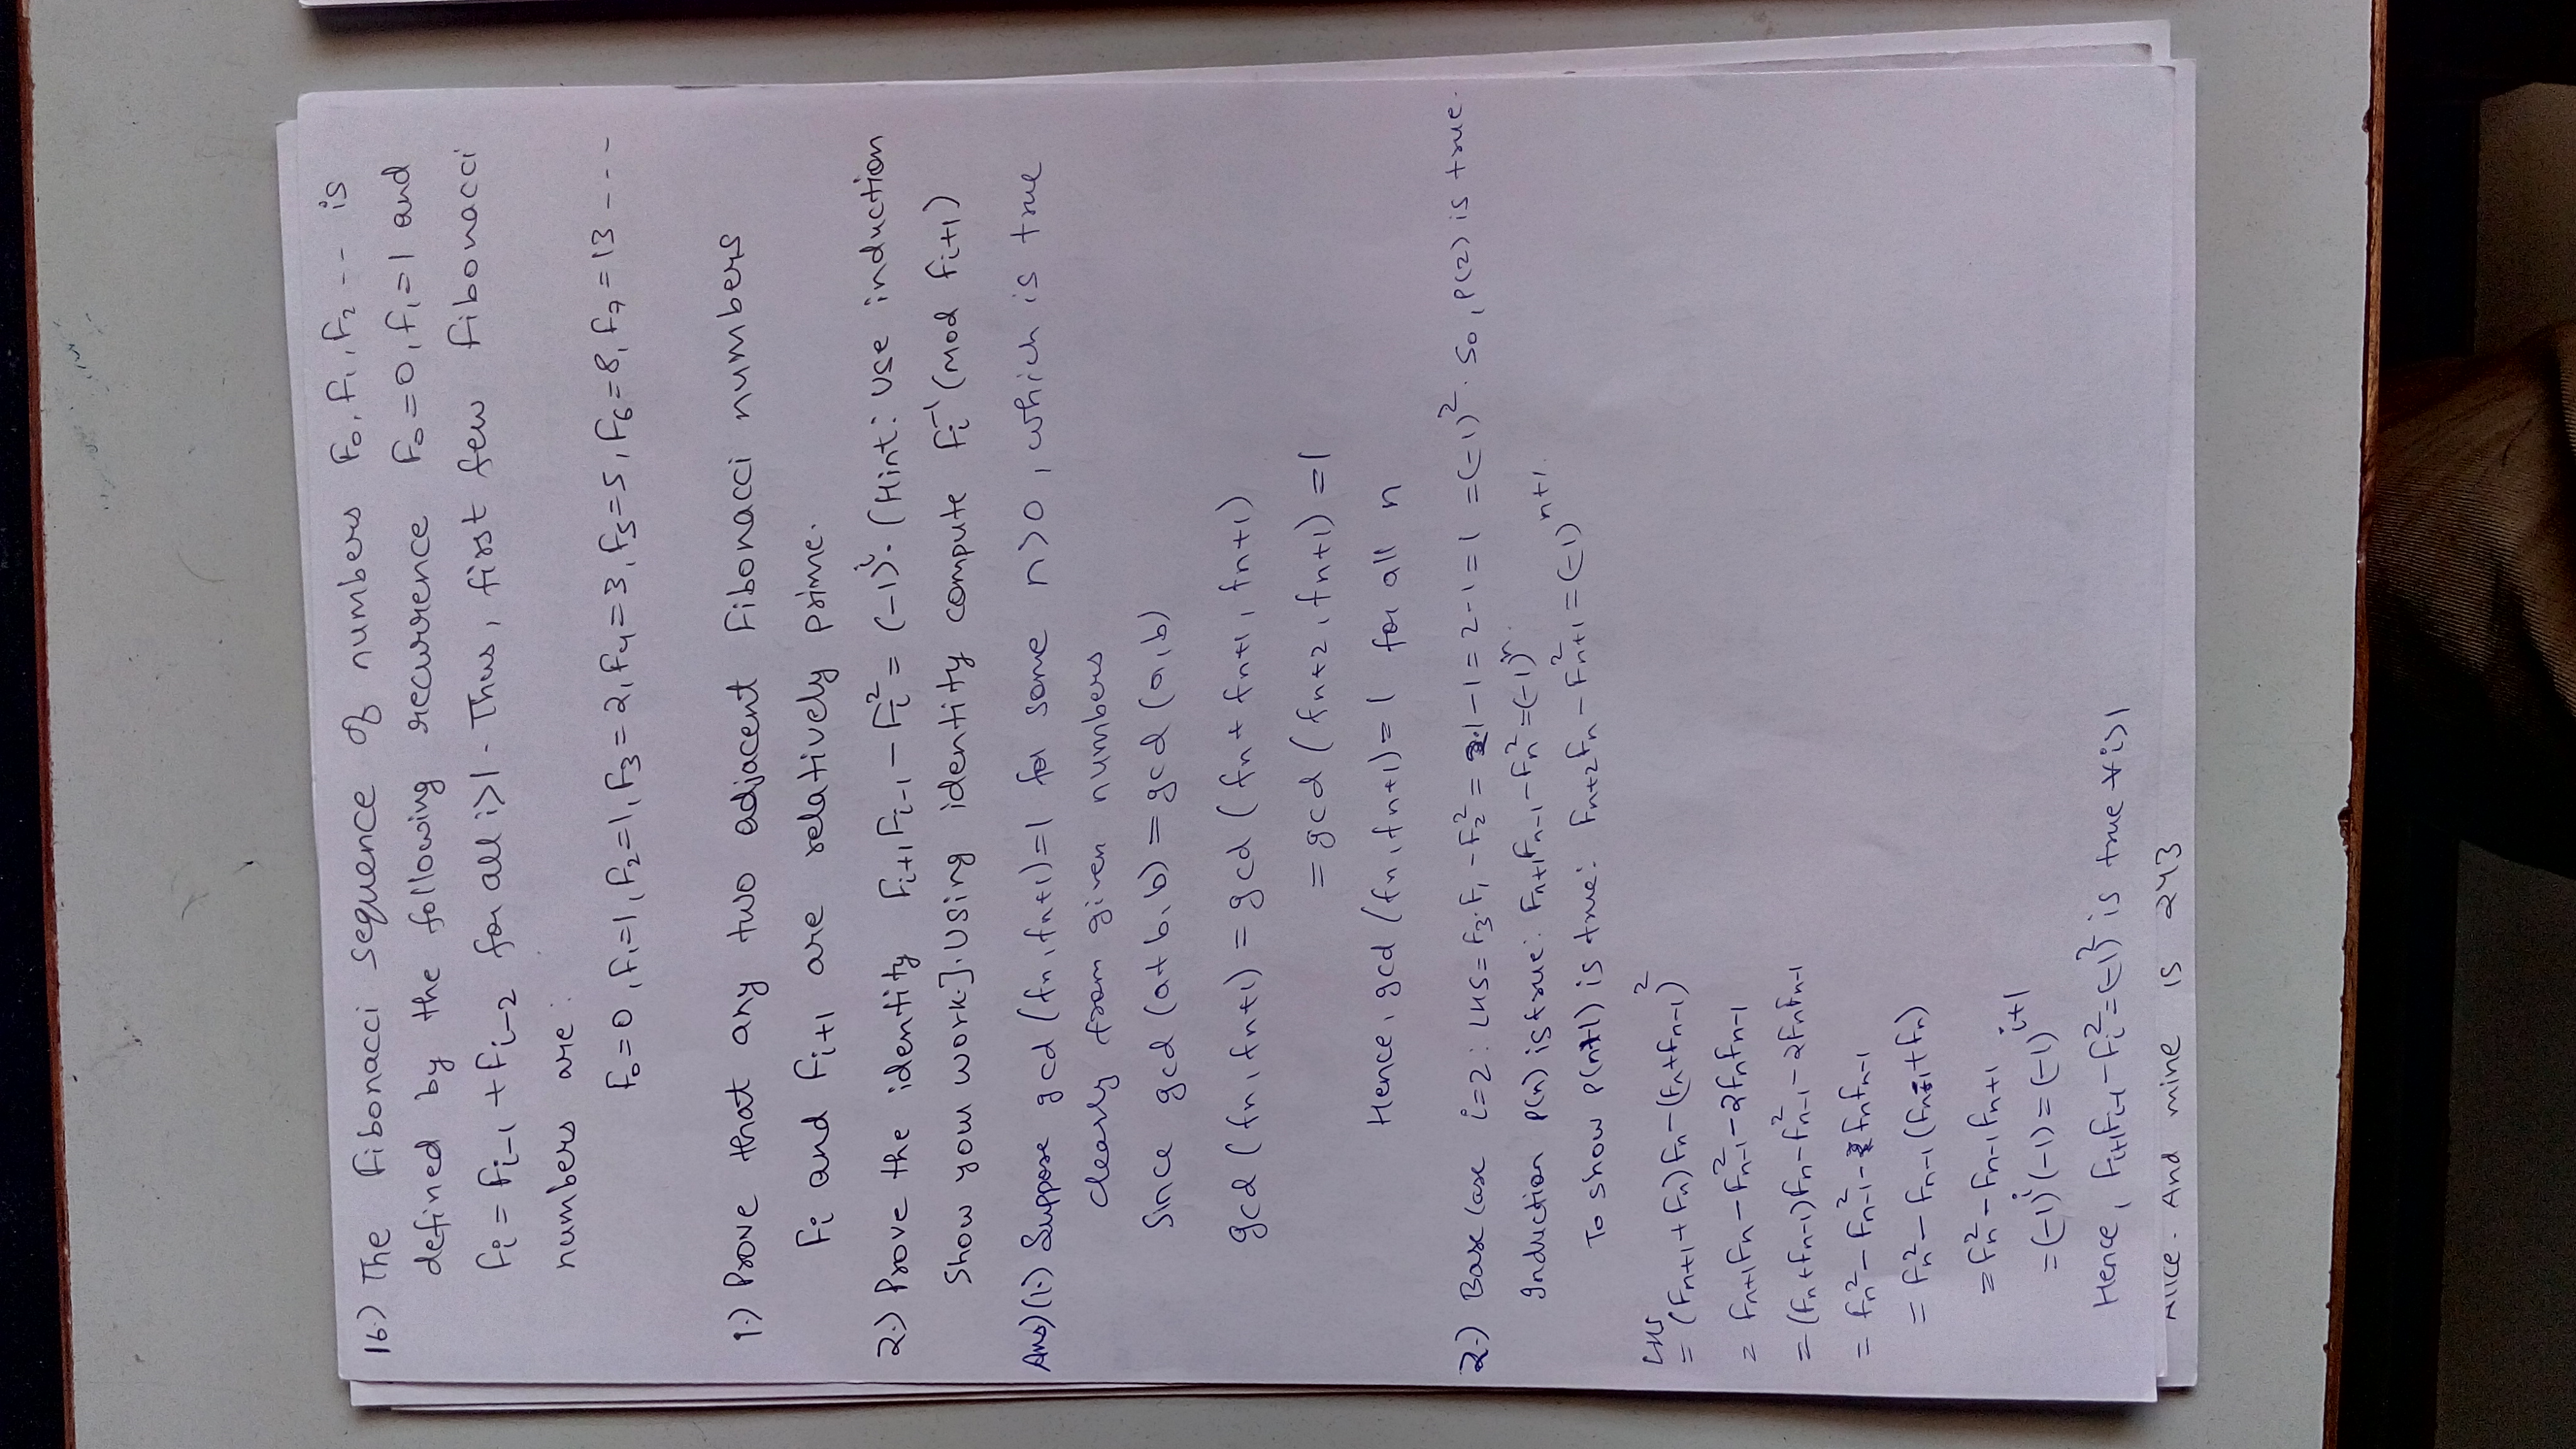 16.) The Fibonacci sequence of numbers F₀, F₁, F₂ -- is
defined by the following recurrence F₀=0, F₁=1 and
Fᵢ = Fᵢ₋₁ + Fᵢ₋₂ for all i>1. Thus, first few Fibonacci
numbers are:
F₀=0, F₁=1, F₂=1, F₃=2, F₄=3, F₅=5, F₆=8, F₇=13 ---
1.) Prove that any two adjacent Fibonacci numbers
Fᵢ and Fᵢ₊₁ are relatively prime.
2.) Prove the identity Fᵢ₊₁Fᵢ₋₁ - Fᵢ² = (-1)ⁱ. (Hint: Use induction
Show your work.]. Using identity compute Fᵢ⁻¹ (mod Fᵢ₊₁)
Ans) (1.) Suppose gcd (fn, fn+1)=1 for some n>0, which is true
clearly from given numbers
Since gcd (a+b, b) = gcd (a, b)
gcd (fn, fn+1) = gcd (fn + fn+1, fn+1)
= gcd (fn+2, fn+1) = 1
Hence, gcd (fn, fn+1) = 1 for all n
2.) Base Case i=2: LHS = F₃.F₁ - F₂² = 2.1-1 = 2-1 = 1 = (-1)². So, P(2) is true.
Induction P(n) is true: Fn+1Fn-1 - Fn² = (-1)ⁿ.
To show P(n+1) is true: Fn+2Fn - F²n+1 = (-1)ⁿ⁺¹.
LHS
= (Fn+1 + Fn) Fn - (Fn+Fn-1)²
= Fn+1Fn - F²n-1 - 2FnFn-1
= (Fn+Fn-1)Fn - F²n-1 - 2FnFn-1
= Fn² - F²n-1 - FnFn-1
= Fn² - Fn-1 (Fn-1+Fn)
= Fn² - Fn-1Fn+1
= (-1)ⁱ(-1) = (-1)ⁱ⁺¹
Hence, Fᵢ₊₁Fᵢ₋₁ - Fᵢ² = (-1)² is true ∀ i>1
Alice. And mine is 243